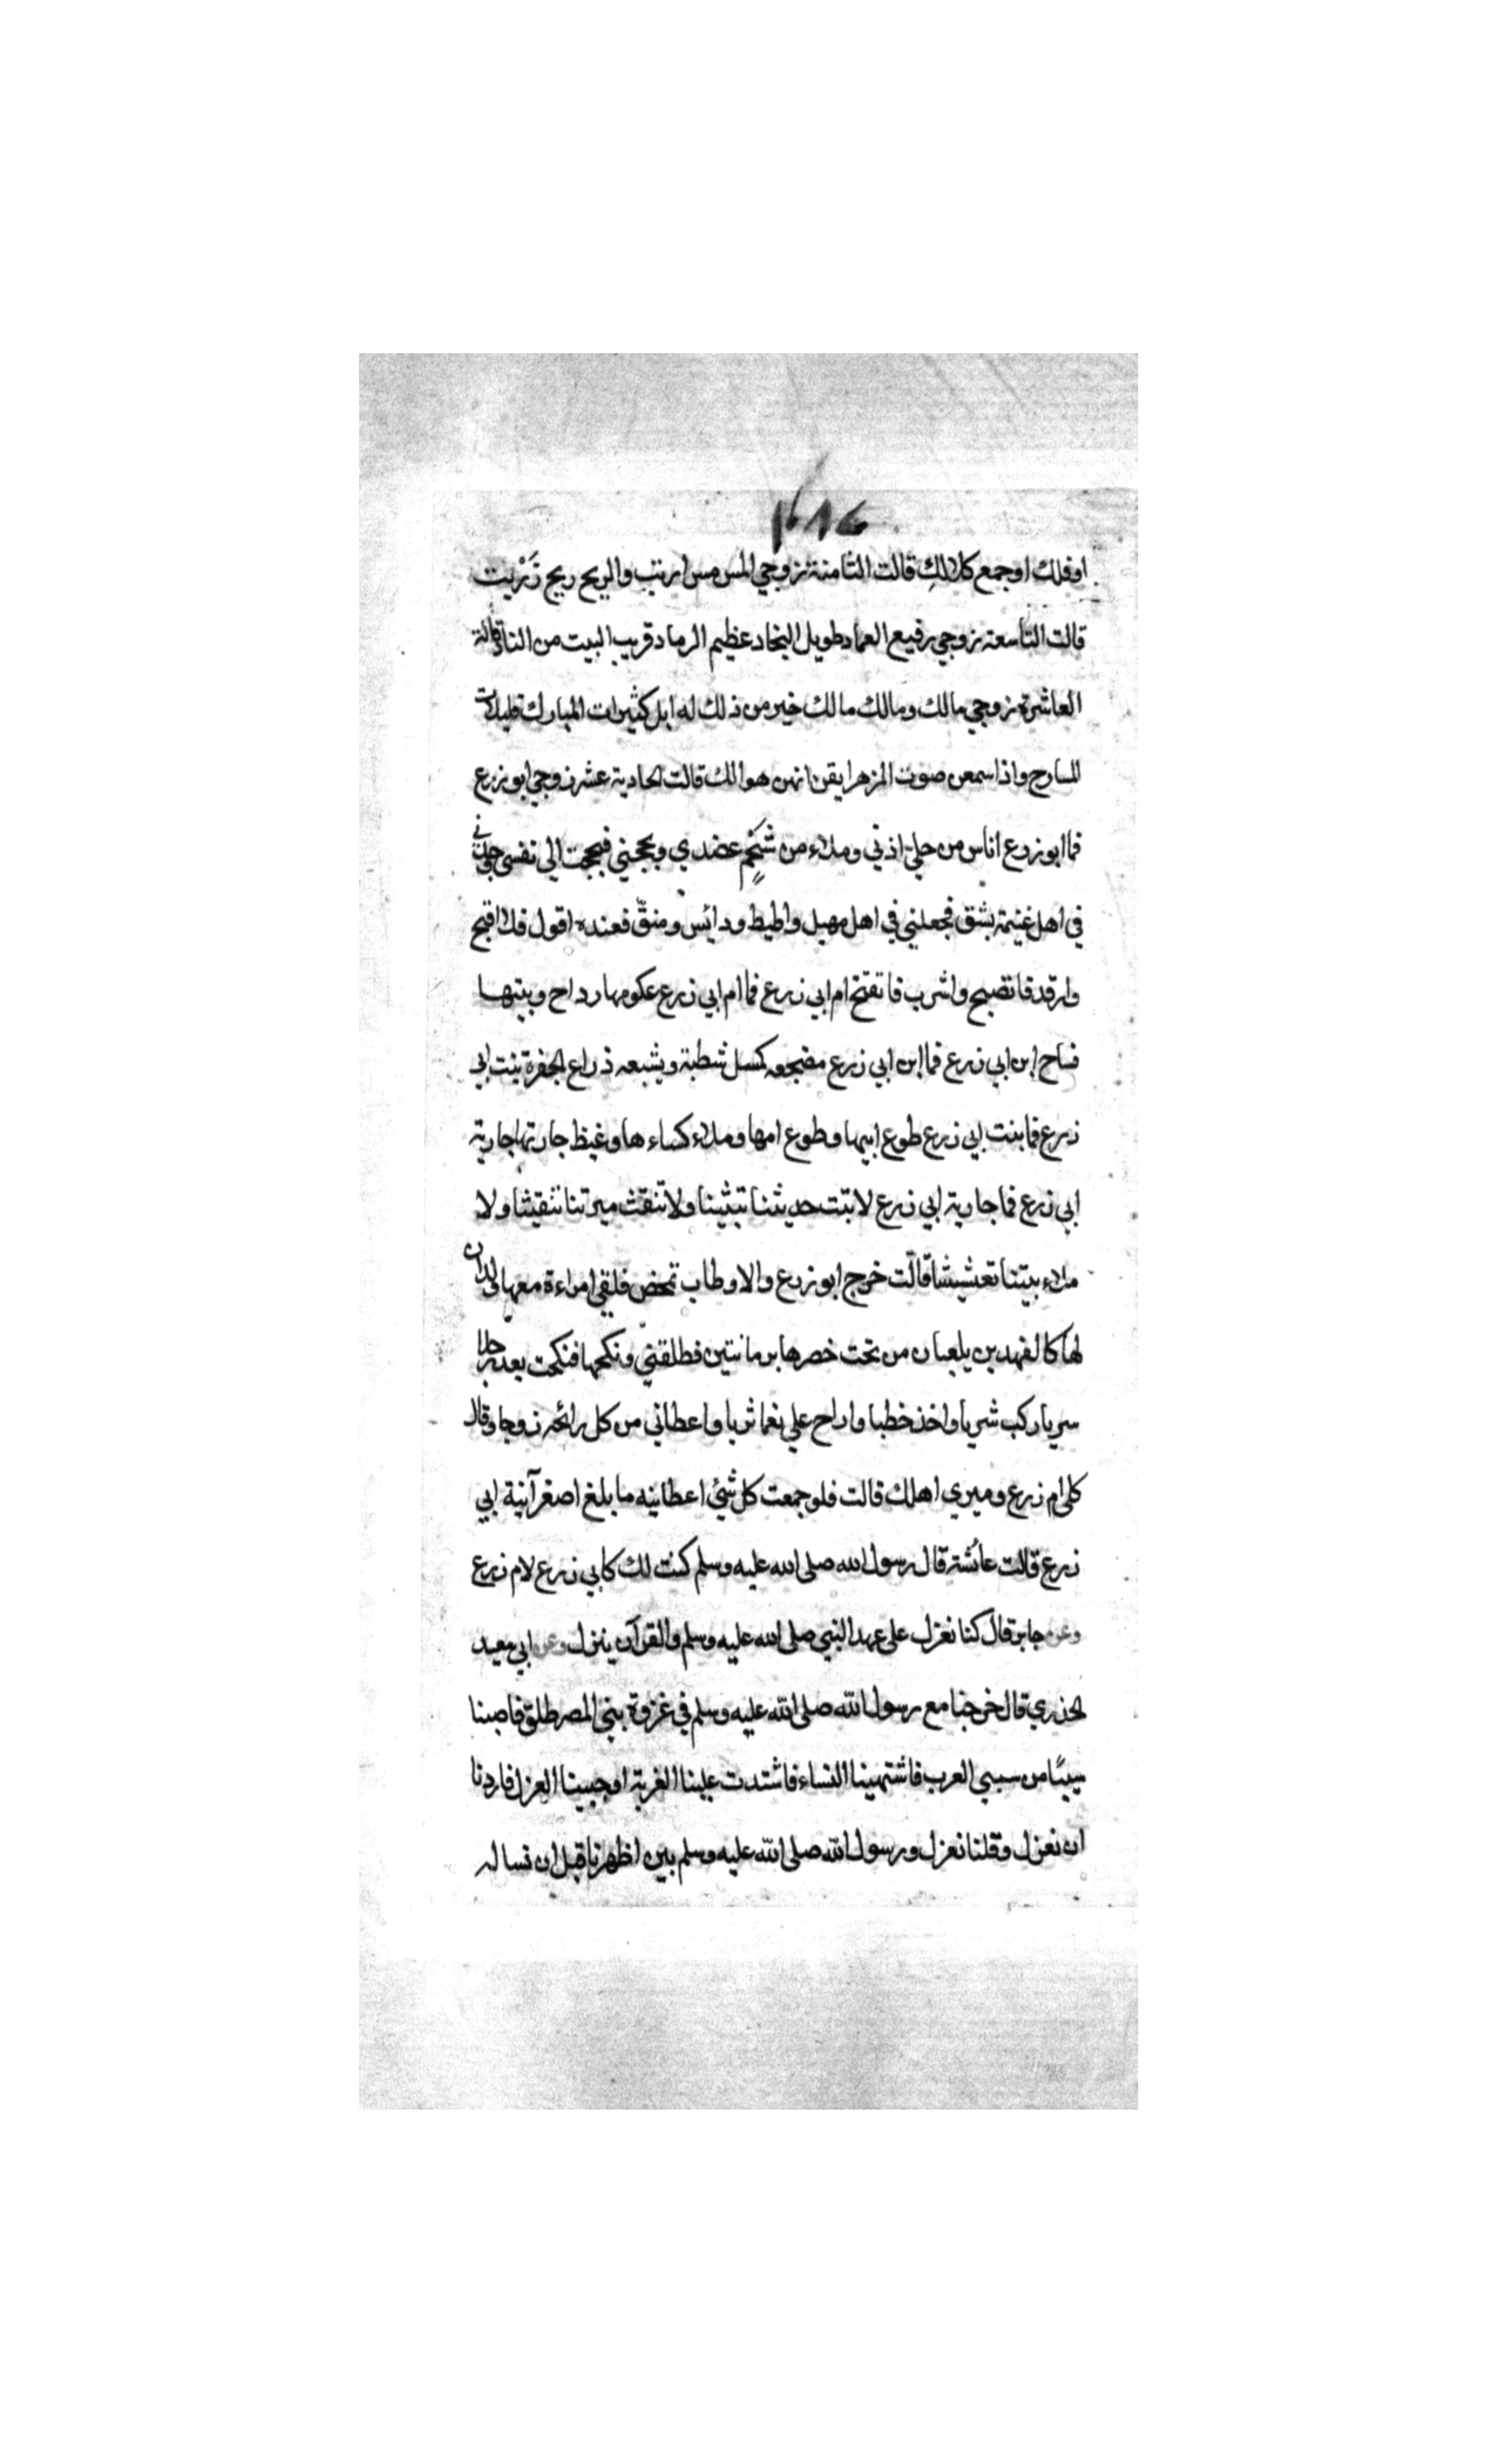 او فلك او جمع كلا لك قالت الثامنة زوجي المس مس ارنب والريح ريح زرنب
قالت التاسعة زوجي رفيع العماد طويل النجاد عظيم الرماد قريب البيت من الناد قالت
العاشرة زوجي مالك وما لك مالك خير من ذلك له ابل كثيرات المبارك قليلات
المسارح واذا سمعن صوت المزهر ايقن انهن هوالك قالت الحادية عشر زوجي ابو زرع
فما ابو زرع اناس من حلي اذني وملاء من شحم عضدي وبجحني فبجحت الي نفسي وجدني
في اهل غنيمة بشق فجعلني في اهل صهيل واطيط ودائس ومنق فعنده اقول فلا اقبح
وارقد فاتصبح واشرب فاتفتح ام ابي زرع فما ام ابي زرع عكومها رداح وبيتها
فساح ابن ابي زرع فما ابن ابي زرع مضجعه كمسل شطبة ويشبعه ذراع الجفرة بنت ابي
زرع فما بنت ابي زرع طوع ابيها وطوع امها وملاء كساءها وغيظ جارتها جارية
ابي زرع فما جارية ابي زرع لا تبث حديثنا تبثيثا ولا تنقث ميرتنا تنقيثا ولا
ملاء بيتنا تعشيشا قالت خرج ابو زرع والاوطاب تمخض فلقي امراءة معها ولدان
لها كالفهدين يلعبان من تحت خصرها برمانتين فطلقني ونكحها فنكحت بعده رجلا
سريا ركب شريا واخذ خطيا واراح علي نعما ثريا واعطاني من كل رائحه زوجا وقال
كلي ام زرع وميري اهلك قالت فلو جمعت كل شئ اعطانيه ما بلغ اصغر آنية ابي
زرع قالت عائشة قال رسول الله صلى الله عليه وسلم كنت لك كابي زرع لام زرع
وعن جابر قال كنا نعزل على عهد النبي صلى الله عليه وسلم والقرآن ينزل وعن ابي سعيد
الخذري قال خرجنا مع رسول الله صلى الله عليه وسلم في غزوة بني المصرطلق فاصبنا
سبيًا من سبي العرب فاشتهينا النساء فاشتدت علينا الغربة اوجبينا العزل فاردنا
ان نعزل وقلنا نعزل ورسول الله صلى الله عليه وسلم بين اظهرنا قبل ان نساله